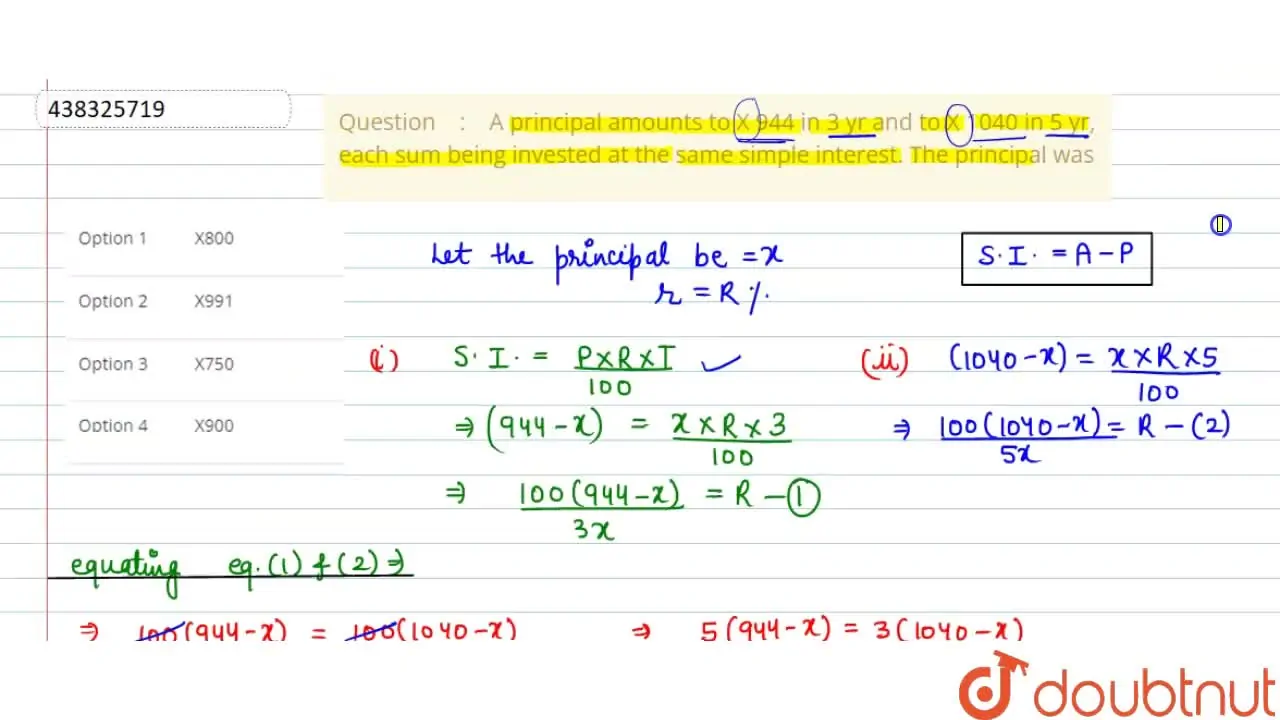 438325719
Question : A principal amounts to X 944 in 3 yr and to X 1040 in 5 yr,
each sum being invested at the same simple interest. The principal was
Option 1 X800
Option 2 X991
Option 3 X750
Option 4 X900
Let the principal be = x
r = R %.
S.I. = A - P
(i) S.I. = P×R×T
100
⇒ (944 - x) = x×R×3
100
⇒ 100(944 - x) = R - ①
3x
(ii) (1040 - x) = x×R×5
100
⇒ 100(1040 - x) = R - (2)
5x
equating eq. (1) & (2) ⇒
⇒ 100(944 - x) = 100(1040 - x) ⇒ 5(944 - x) = 3(1040 - x)
doubtnut